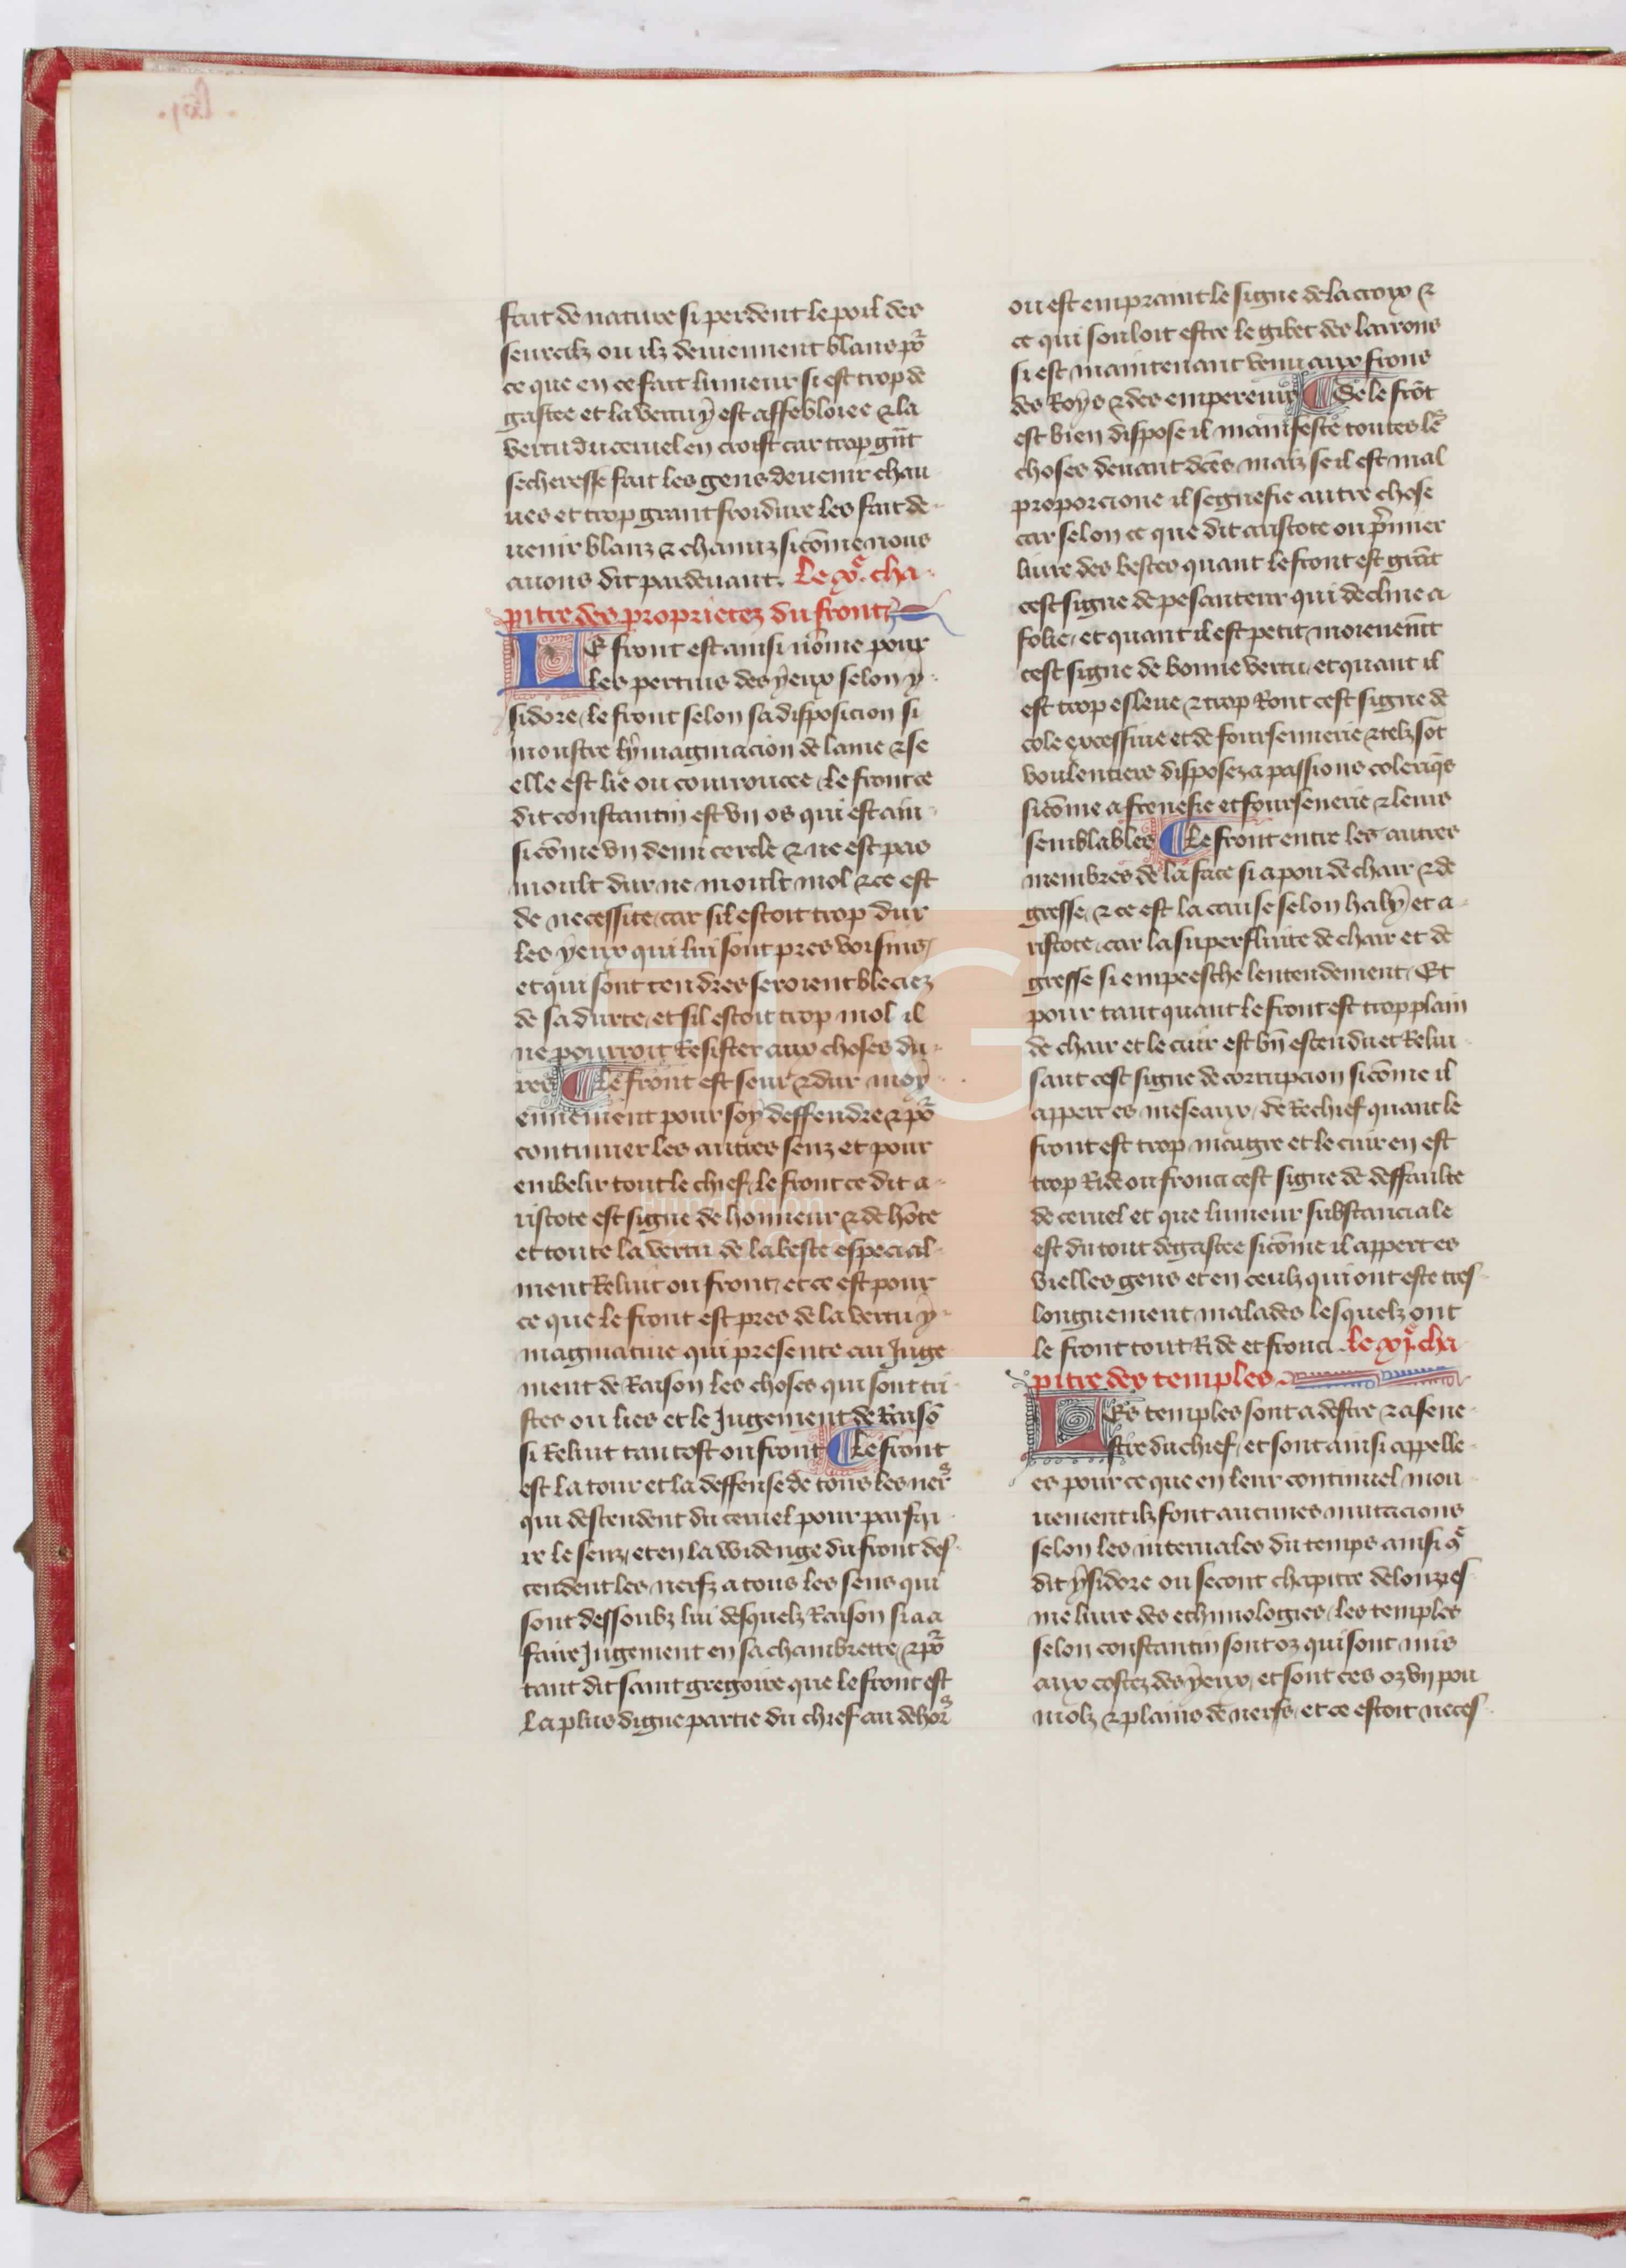 fait de nature si perdent le poil des
seurcilz ou ilz deuiennent blans po᷑
ce que en ce fait lumeur si est trop de
gastee et la vertu y est affebloiee ⁊ la
vertu du ceruel en croist car trop gñt
secheresse fait les gens deuenir chau
ues et trop grant froidure les fait de
uenir blanz ⁊ chanuz sicõme nous
auons dit pardeuant. Le xe. cha
pitre des proprietez du front
LE front est ainsi nõme pour
les pertuis des yeux selon y
sidore / le front selon sa disposicion si
monstre lymaginacion de lame ⁊ se
elle est lie ou courroucee / le front ce
dit constantin est vn os qui est ain
sicõme vn demi cercle ⁊ ne est pas
moult dur ne moult mol ⁊ ce est
de necessite / car sil estoit trop dur
les yeux qui lui sont pres voisins /
et qui sont tendres seroient bleciez
de sa durte / et sil estoit trop mol il
ne pourroit Resister aux choses du
res ¶ Le front est seur ⁊ dur moy
ennement pour soy deffendre ⁊ po᷑
continuer les autres senz et pour
embelir tout le chief / le front ce dit a
ristote est signe de honneur ⁊ de hõte
et toute la vertu de la beste especial
ment Reluit ou front / et ce est pour
ce que le front est pres de la vertu y
maginatiue qui presente au Juge
ment de Raison les choses qui sont tri
stes ou lies et le Jugement de Raisõ
si Reluit tantost ou front ¶ Le front
est la tour et la deffense de tous les ners
qui descendent du ceruel pour parfai
re le senz / et en la widenge du front des
cendent les nerfz a tous les sens qui
sont dessoubz lui desquelz Raison si a a
faire Jugement en sa chambrette / ⁊ po᷑
tant dit saint gregoire que le front est
la plus digne partie du chief au dehors
ou est empraint le signe de la croix ⁊
ce qui souloit estre le gibet des larrons
si est maintenant venu aux frons
des Roys ⁊ des empereurs ¶ Se le frõt
est bien dispose il manifeste toutes les
choses deuant dces. maiz se il est mal
proporcione il segnefie autre chose
car selon ce que dit aristote ou p̃mier
liure des bestes quant le front est grãt
cest signe de pesanteur qui decline a
folie / et quant il est petit moienem̃t
cest signe de bonne vertu / et quant il
est trop esleue ⁊ trop Ront cest signe de
cole excessiue et de foursennerie ⁊ telz sõt
voulentiers disposez a passions coleriq̃s
sicõme a frenesie et foursenerie ⁊ leurs
semblables ¶ Le front entre les autres
membres de la face si a pou de chair ⁊ de
gresse / ⁊ ce est la cause selon haly et a
ristote / car la superfluite de chair et de
gresse si empeesche lentendement / Et
pour tant quant le front est trop plain
de chair et le cuir est bñ estendu et Relui
sant cest signe de corrupcion sicõme il
appert es meseaux / de Rechief quant le
front est trop maigre et le cuir en est
trop Ride ou fronci cest signe de deffaulte
de ceruel et que lumeur substanciale
est du tout degastee sicõme il appert es
vielles gens et en ceulz qui ont este tres
longuement malades lesquelz ont
le front tout Ride et fronci. Le xie. cha
pitre des temples
LEs temples sont a destre ⁊ a sene
stre du chief / et sont ainsi appelle
es pour ce que en leur continuel mou
uement ilz font aucunes mutacions
selon les interuales du temps ainsi q̃
dit ysidore ou secont chapitre de lonzies
me liure des ethimologies / les temples
selon constantin sont oz qui sont mis
aux costez des yeux / et sont ces oz vn pou
molz ⁊ plains de nerfs / et ce estoit neces